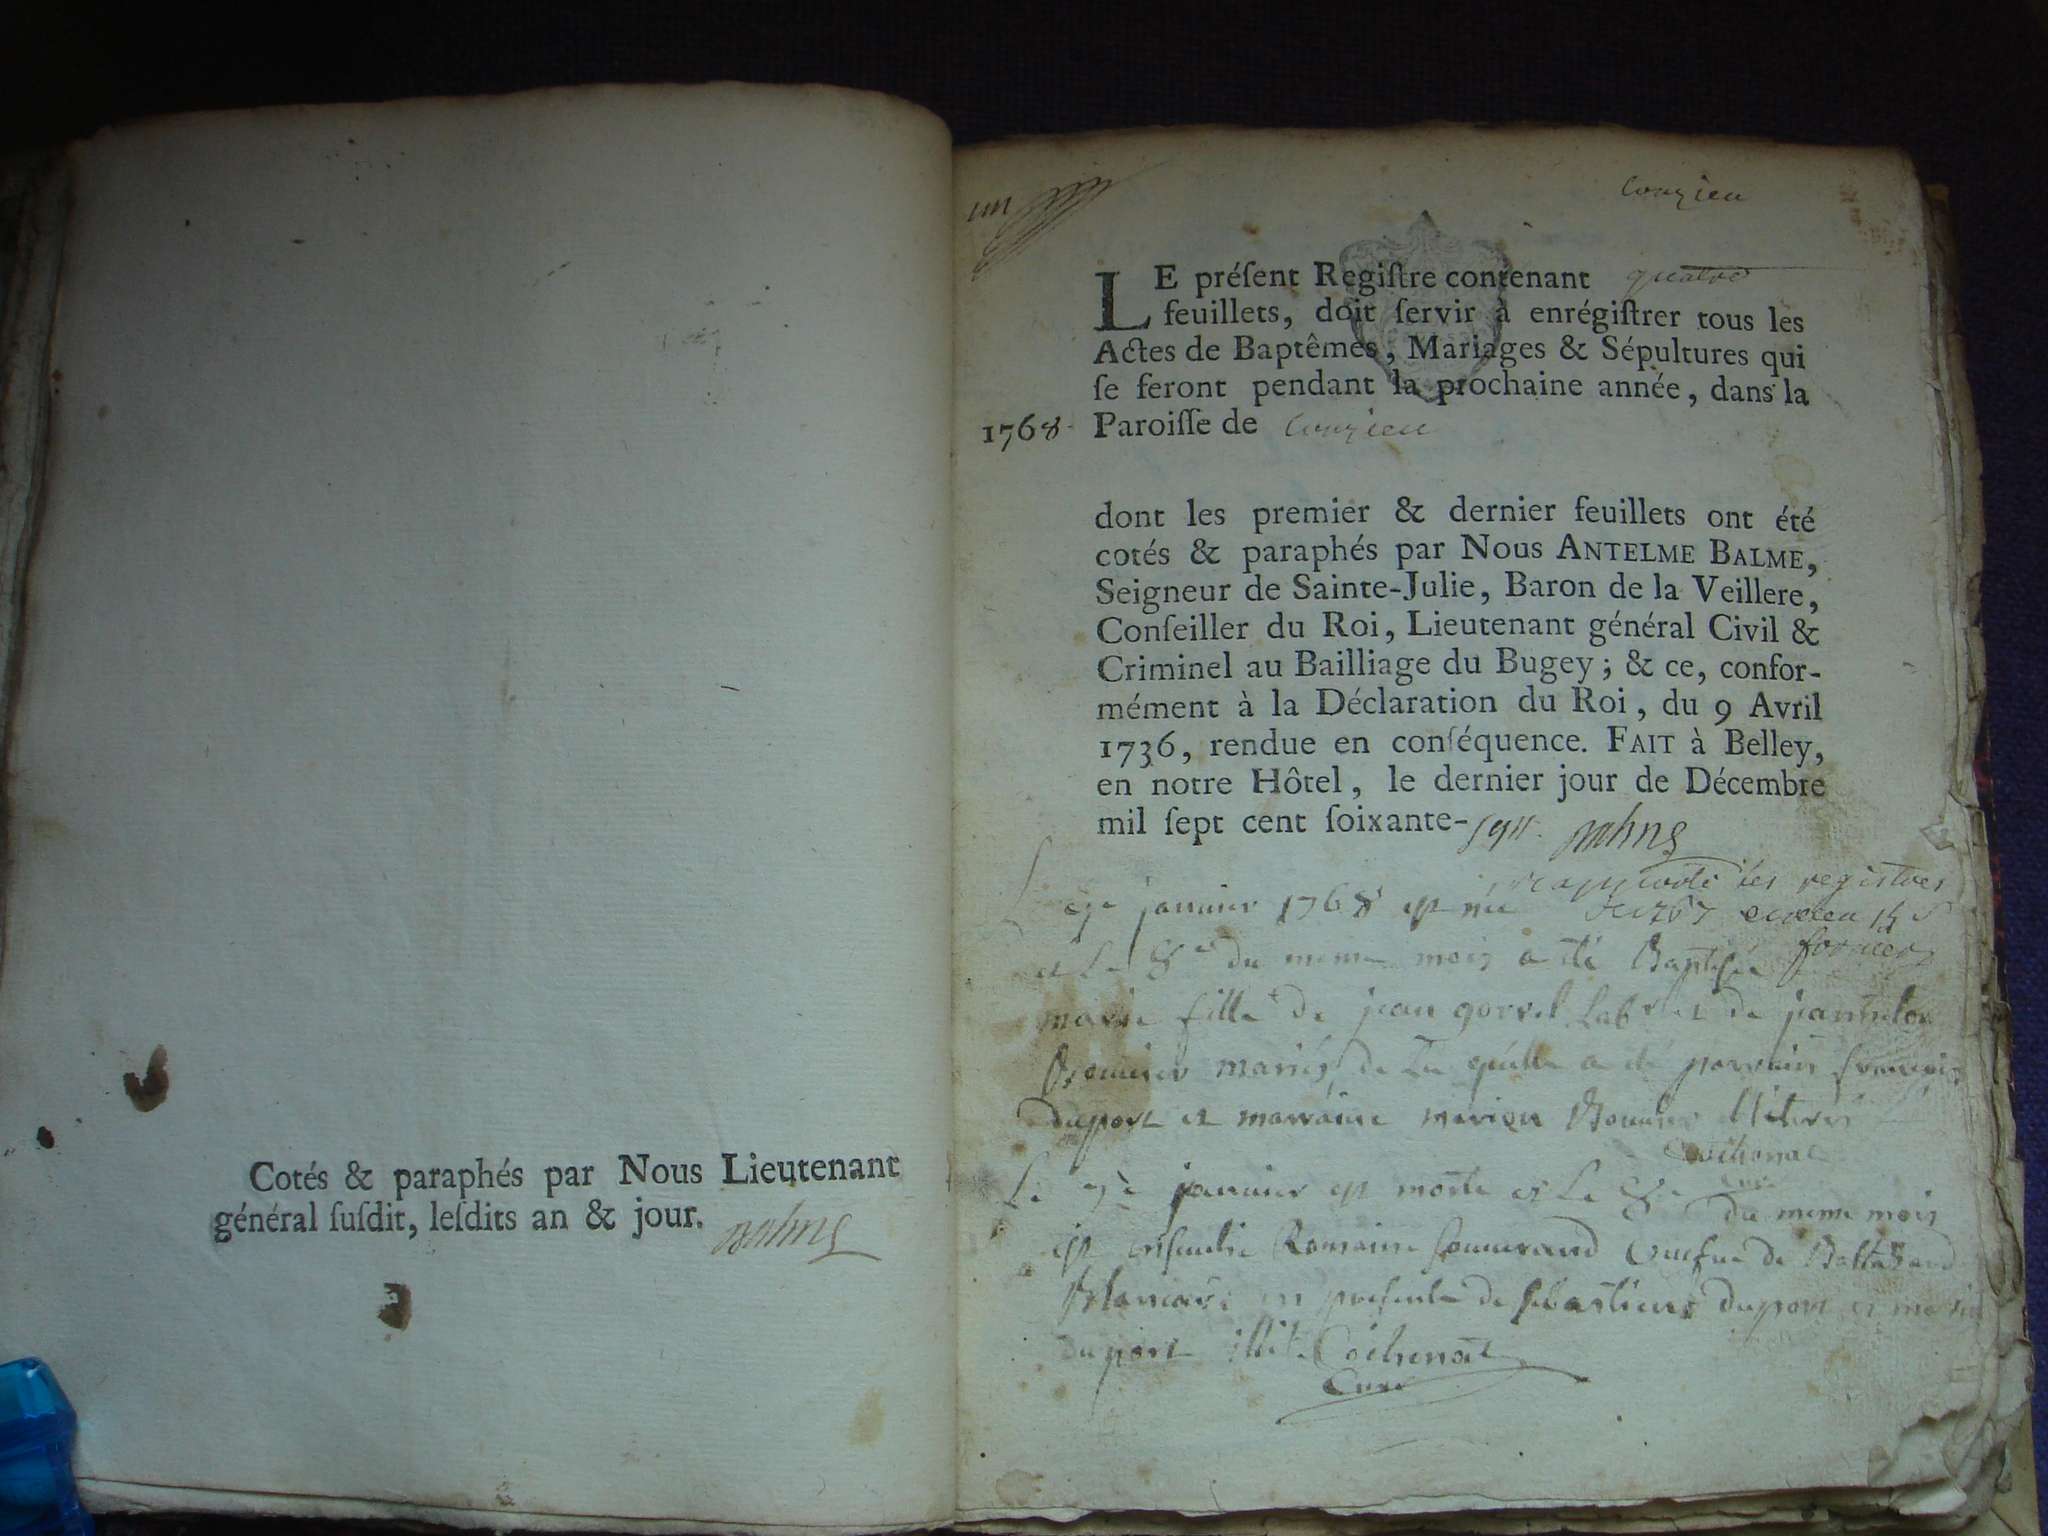 Cotés & paraphés par Nous Lieutenant
général ſuſdit, leſdits an & jour.
un
Conzieu
LE préſent Regiſtre contenant quatre
feuillets, doit ſervir à enrégiſtrer tous les
Actes de Baptêmes, Mariages & Sépultures qui
ſe feront pendant la prochaine année, dans la
1768 Paroiſſe de Conzieu
dont les premier & dernier feuillets ont été
cotés & paraphés par Nous ANTELME BALME,
Seigneur de Sainte-Julie, Baron de la Veillere,
Conſeiller du Roi, Lieutenant général Civil &
Criminel au Bailliage du Bugey; & ce, confor-
mément à la Déclaration du Roi, du 9 Avril
1736, rendue en conſéquence. FAIT à Belley,
en notre Hôtel, le dernier jour de Décembre
mil ſept cent ſoixante-sept.
rapporté les registres
Le janvier 1768 est née
et Le 8e du meme mois a été Baptisée
marie fille de jean gorrel et de
mariés, de La quelle a été parrain françois
duport et marraine
Cochonat
curé
Le 7e janvier est morte et Le 8e du meme mois
est ensevelie Romaine veufue de
en presence de sebastien duport et
duport illit. Cochonat
Curé